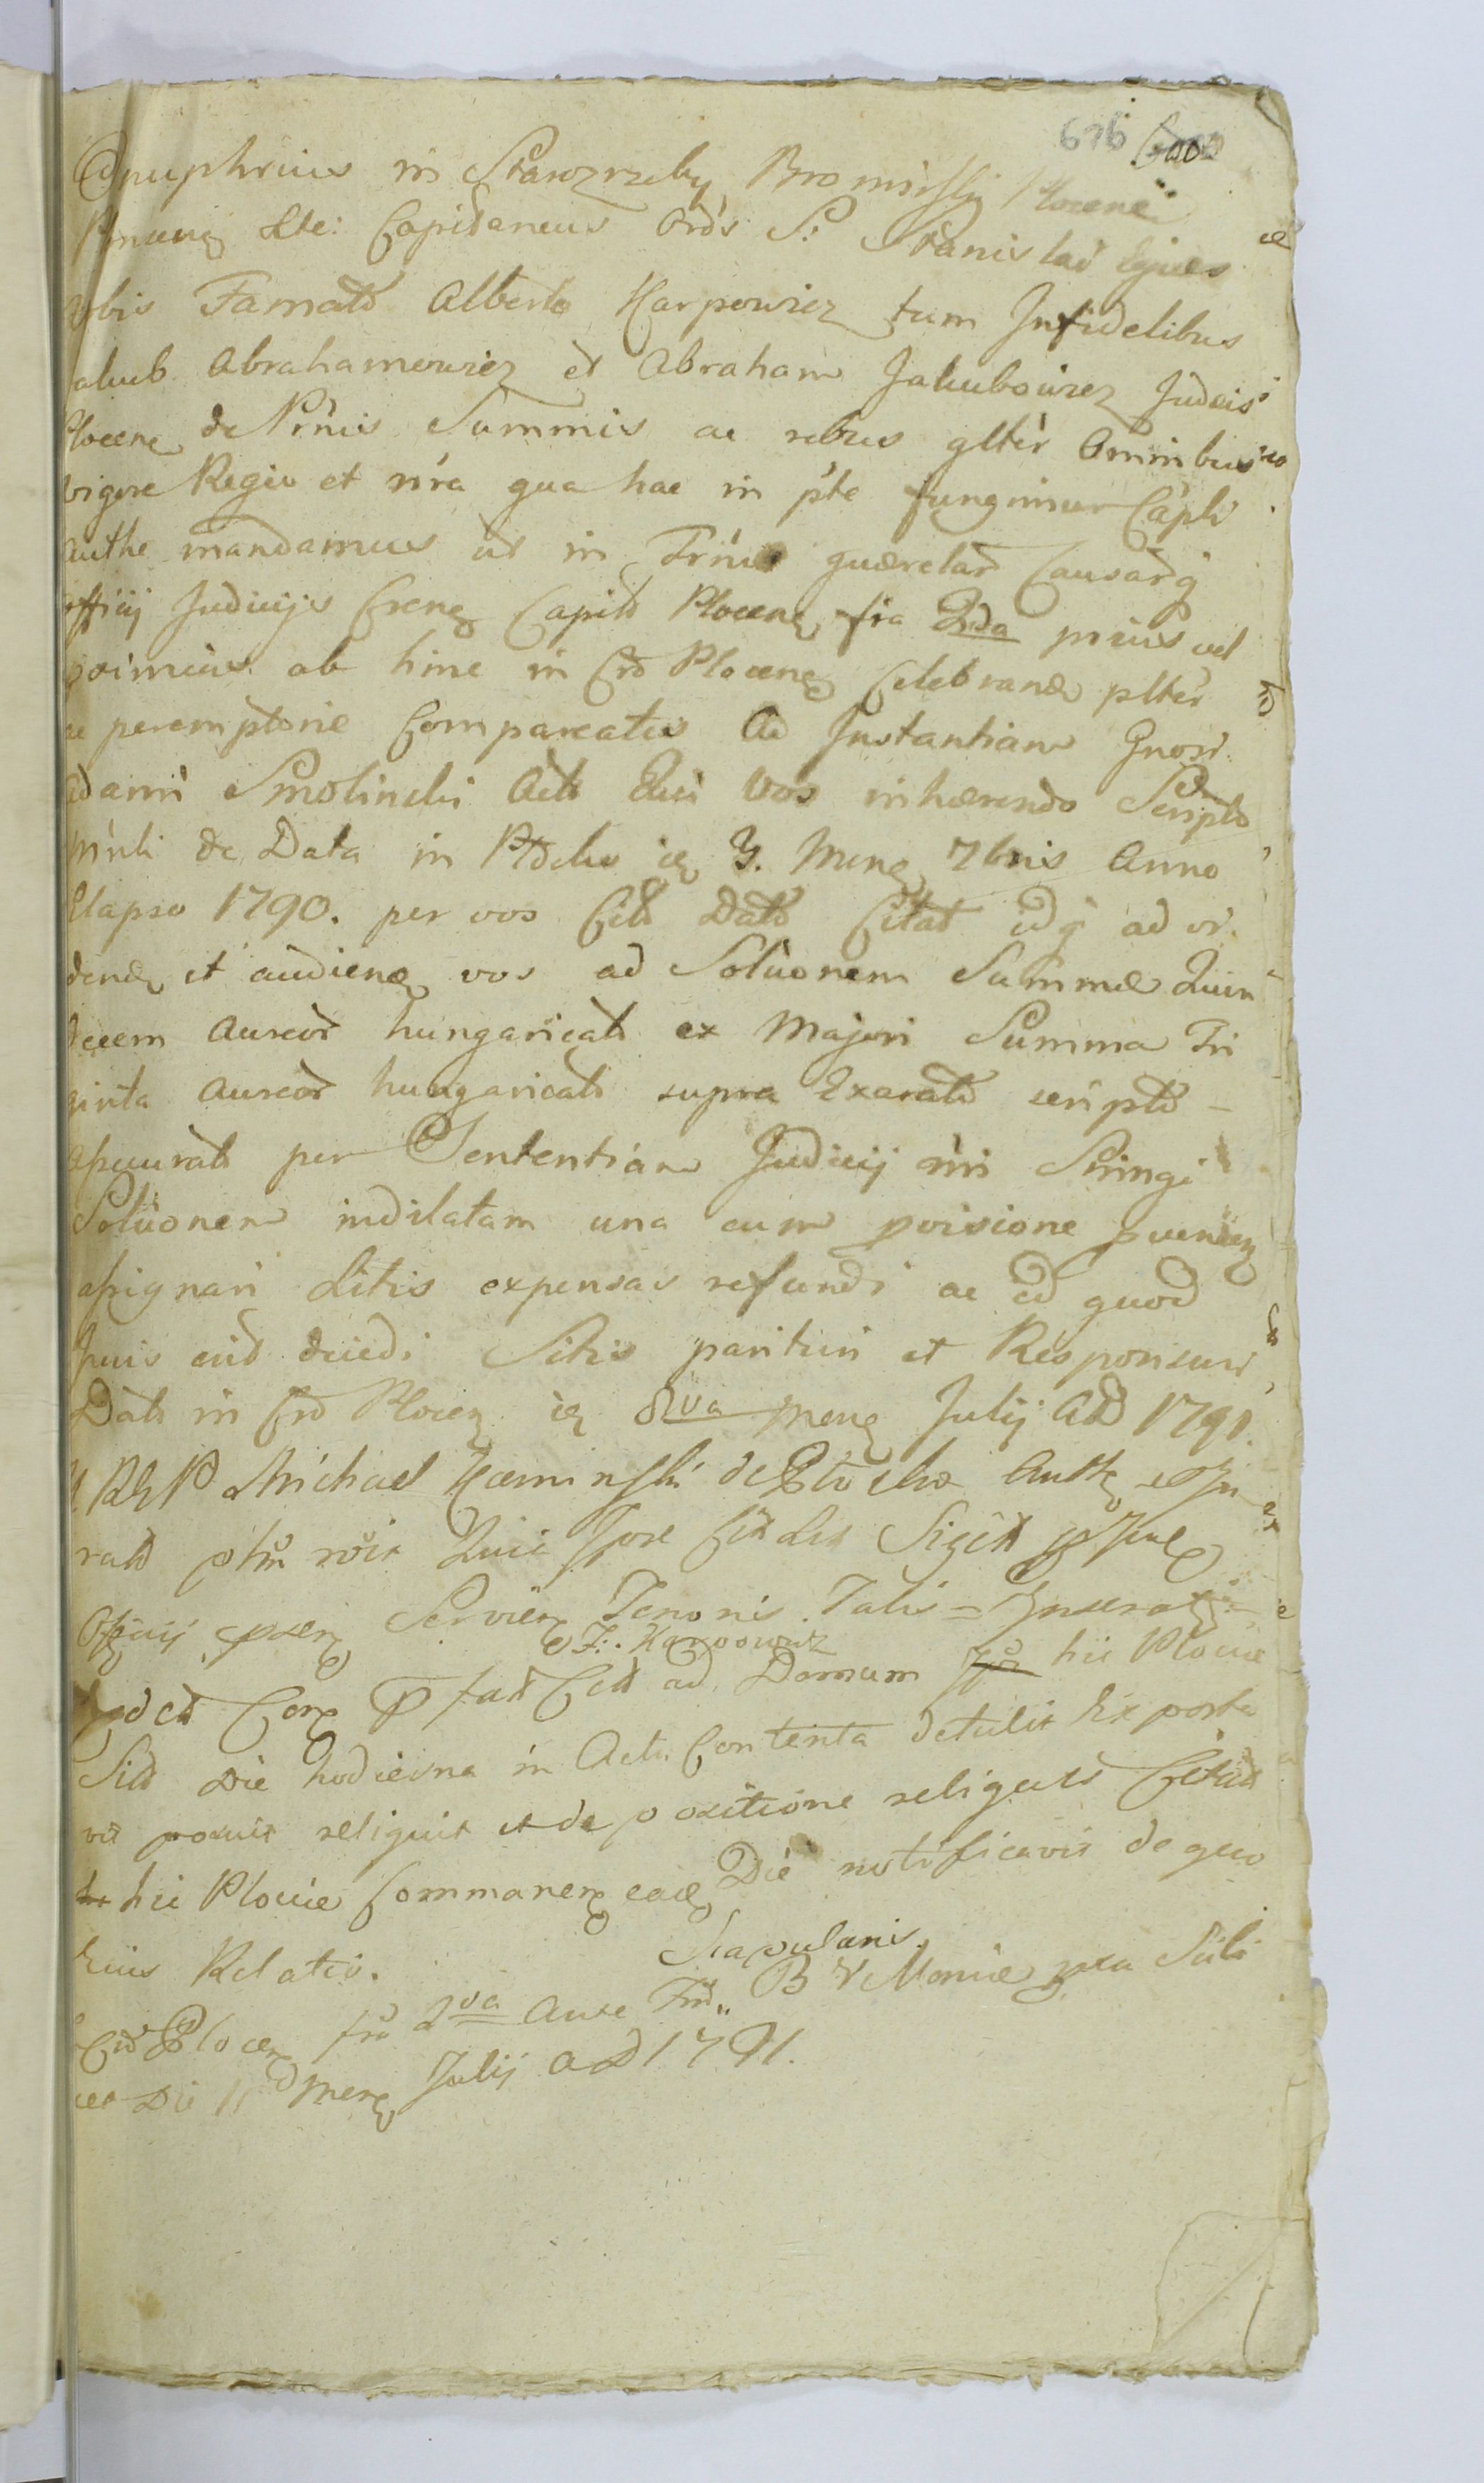 696
Onuphrius in Starozreby Bromirski Plocen
Capitaneus Ords S: Stanislai Eques
vobis Famato Alberto Karpowicz tum Infidelibus
Jakub Abrahamowicz et Abraham Jakubowicz Judæis
Plocen de Prnis Summis ac rebus gltèr Omnibus
vigore Regia et nra qua hac in pte fungimur Capli
Authe mandamus ut in Trnis quærelar Causarq
officij Judicijs Crens Capit Plocen fra 2da prius vel
poximius ab hinc in Cro Plocen Celebrand pltèr
ac peremptorie Compareatis Ad Instantiam Gnosi
Adami Smolinski Act Qui Vos inhærendo Scripto
mnli de Data in Plocku ie 3. Mens 7bris Anno
Elapso 1790. per vos Dato Citat idq ad vi
dend et audiend vos ad Soluonem Summæ Quin
decem Aureor hungaricalt ex Majori Summa Tri
ginta Aureor hungaricalt supra Exarato scripto -
assecurat per Sententiam Judicij nri Stringi
Soluonem indilatam una cum pvisione pvenien
assignari Litis expensas refundi ac id quod
Juris erit decidi Sitis parituri et Responsuri
Dat in Cro Plocen ie 8va Mens Julij AD 1791.
Michael Kaminski de Plocko Auth et Ju
rat Sigilt
Officij psen Servien Tenoris Talis = Inserat
F: Karpowicz
Cors fat ad Domum hic Plociæ
Sit Die hodierna in Actu Contenta detulit Ex parte
vit posuit reliquit et de positione reliquit Citat
hic Plociæ Commanen ead Die notificavit de quo
Eius Relatio.
Scapularis
Cro Plocen fra 2da Ante Fest B V Mariæ
Die 11 Mens Julij AD 1791.